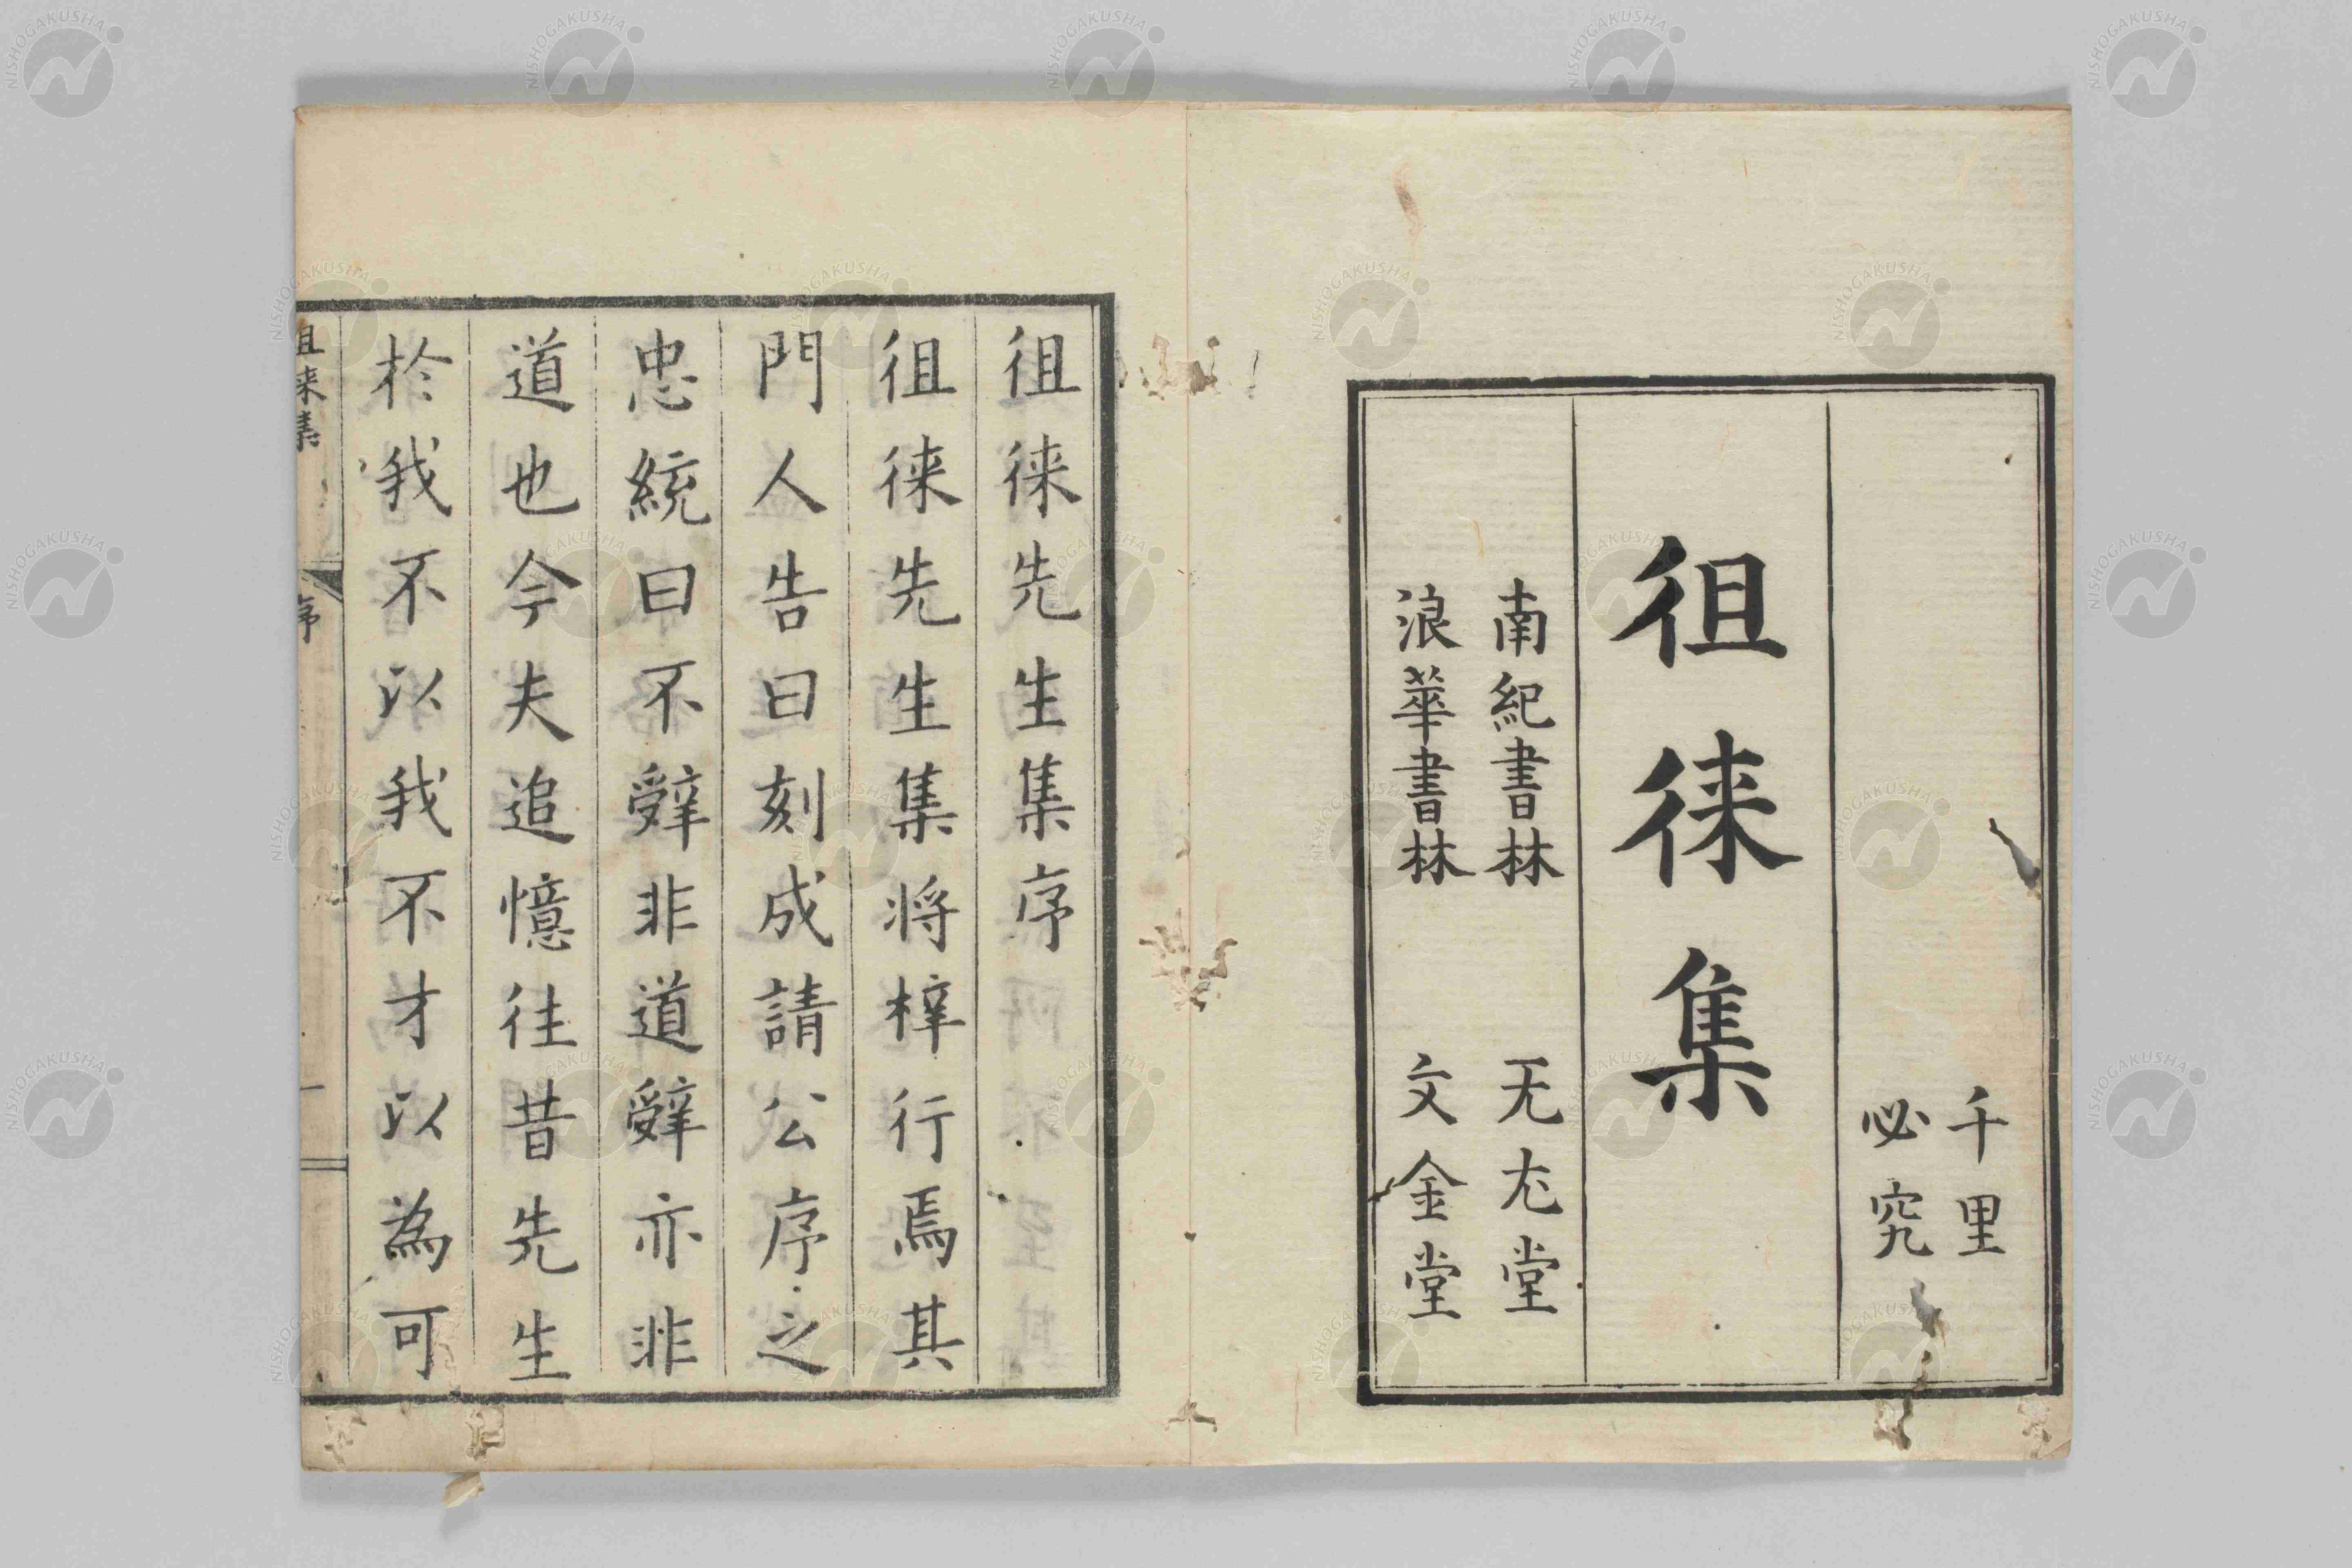 千里
必究
徂徠集
南紀書林 无尤堂
浪華書林 文金堂
徂徠先生集序
徂徠先生集將梓行焉其
門人告曰刻成請公序之
忠統曰不辭非道辭亦非
道也今夫追憶往昔先生
於我不以我不才以為可
徂徠集 序 一
NISHOGAKUSHA